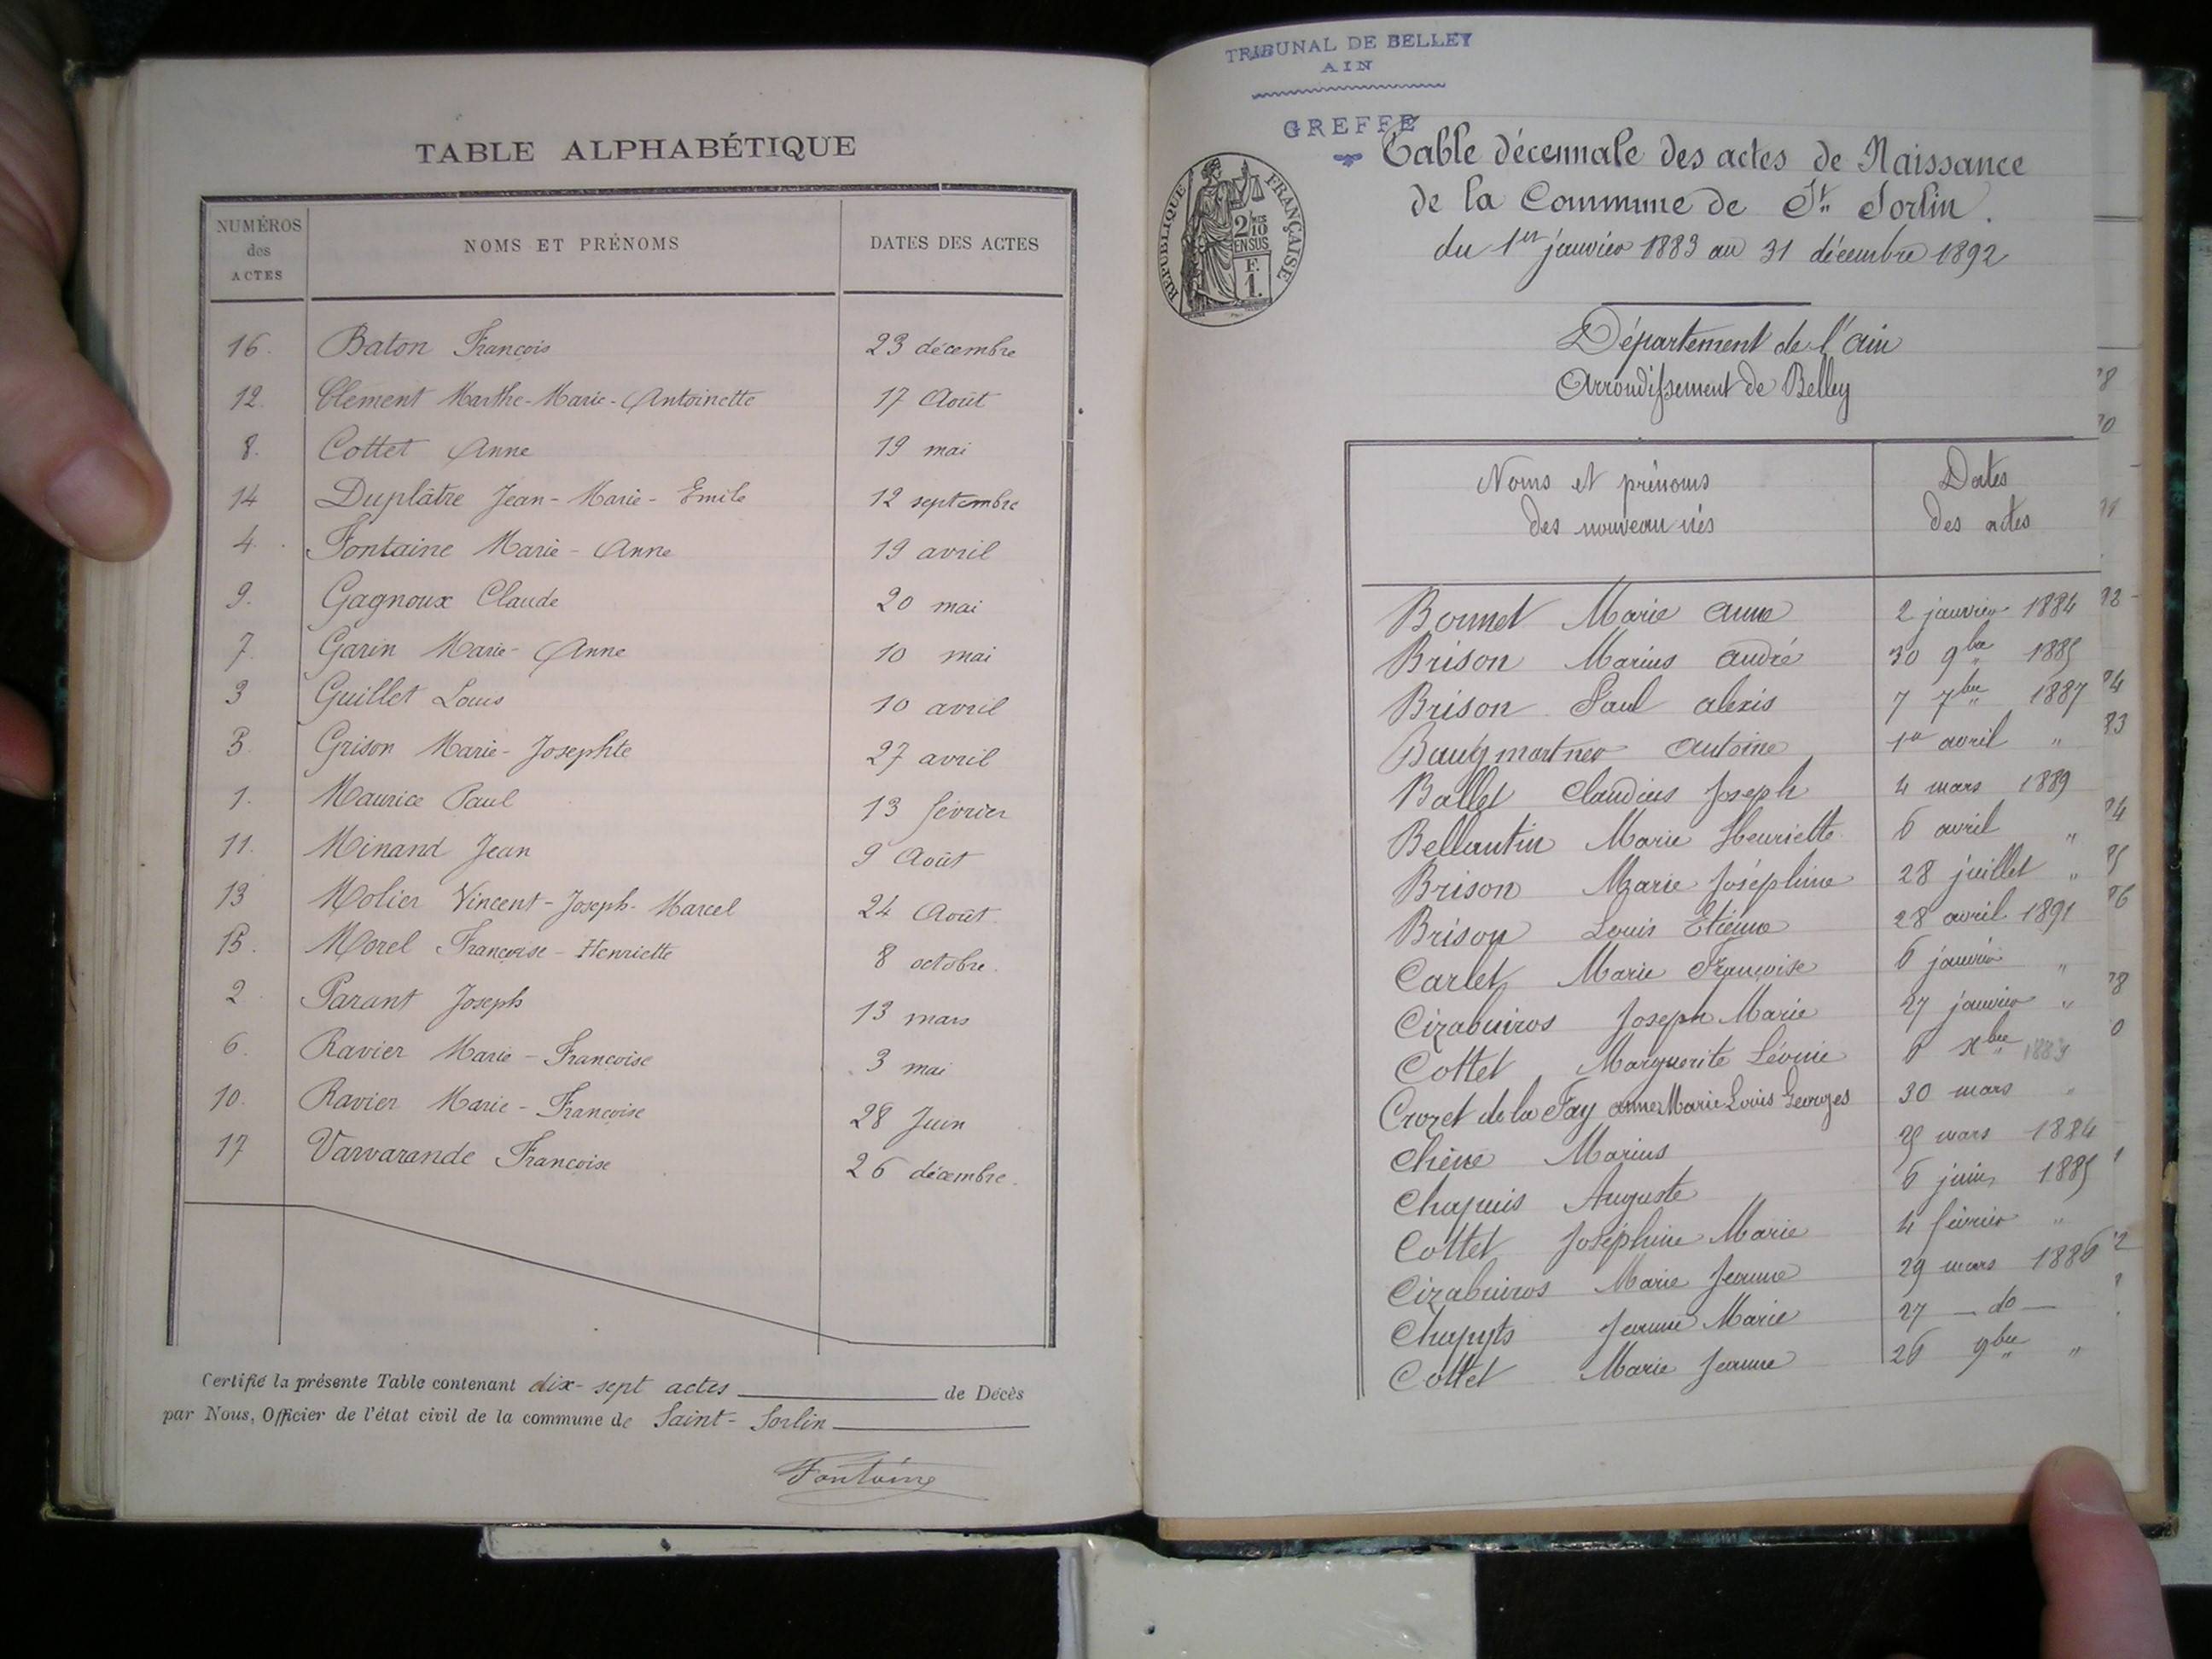 TABLE ALPHABÉTIQUE
NUMÉROS des ACTES NOMS ET PRÉNOMS DATES DES ACTES
16. Baton François 23 décembre
12. Clement Marthe-Marie-Antoinette 17 Août
8. Cottet Anne 19 mai
14 Duplâtre Jean-Marie-Emile 12 septembre
4. Fontaine Marie-Anne 19 avril
9. Gagnoux Claude 20 mai
7. Garin Marie-Anne 10 mai
3 Guillet Louis 10 avril
5. Grison Marie-Josephte 27 avril
1. Maurice Paul 13 février
11. Minand Jean 9 Août
13 Molier Vincent-Joseph-Marcel 24 Août
15. Morel Françoise-Henriette 8 octobre.
2 Parant Joseph 13 mars
6. Ravier Marie-Françoise 3 mai
10. Ravier Marie-Françoise 28 Juin
17 Varvarande Françoise 26 décembre.
Certifié la présente Table contenant dix-sept actes de Décès
par Nous, Officier de l'état civil de la commune de Saint-Sorlin
Fontaine
TRIBUNAL DE BELLEY
AIN
GREFFE
RÉPUBLIQUE FRANÇAISE
2/10 EN SUS
F. 1.
Table décennale des actes de Naissance
de la Commune de St. Sorlin.
du 1er janvier 1883 au 31 décembre 1892
Département de l'Ain
Arrondissement de Belley
Noms et prénoms Dates
des nouveau nés des actes
Bonnet Marie Anne 2 janvier 1884
Brison Marius André 30 9bre 1885
Brison Paul alexis 7 7bre 1887
Baugmartner Antoine 1er avril "
Ballet Claudius Joseph 4 mars 1889
Bellantin Marie Henriette 6 avril "
Brison Marie Joséphine 28 juillet "
Brison Louis Etienne 28 avril 1891
Carlet Marie Françoise 6 janvier "
Cizabuiros Joseph Marie 27 janvier "
Cottet Marguerite Léonie 6 xbre 1883
Crozet de la Fay anne Marie Louis Georges 30 mars "
Chêne Marius mars 1884
Chapuis Auguste 6 juin 1885
Cottet Joséphine Marie 4 février "
Cizabuiros Marie Jeanne 29 mars 1886
Chapuis Jeanne Marie 27 — do —
Cottet Marie Jeanne 26 9bre "